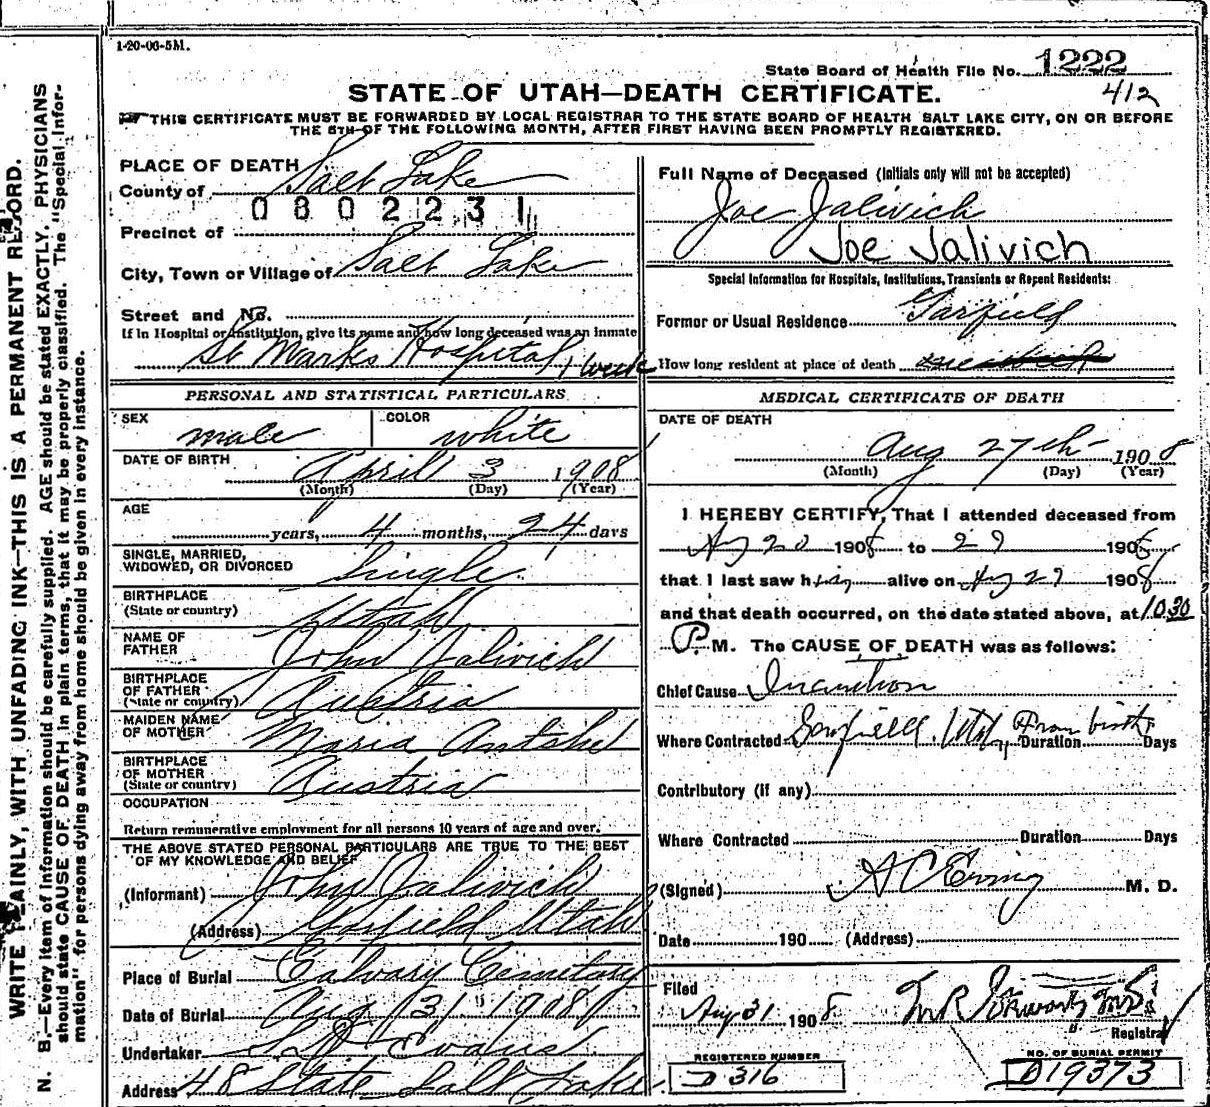 1-20-06-5M.
State Board of Health File No. 1222
412
STATE OF UTAH—DEATH CERTIFICATE.
THIS CERTIFICATE MUST BE FORWARDED BY LOCAL REGISTRAR TO THE STATE BOARD OF HEALTH SALT LAKE CITY, ON OR BEFORE
THE 5TH OF THE FOLLOWING MONTH, AFTER FIRST HAVING BEEN PROMPTLY REGISTERED.
WRITE PLAINLY, WITH UNFADING INK—THIS IS A PERMANENT RECORD.
N. B.—Every item of information should be carefully supplied. AGE should be stated EXACTLY. PHYSICIANS
should state CAUSE OF DEATH in plain terms, that it may be properly classified. The "Special Infor-
mation" for persons dying away from home should be given in every instance.
PLACE OF DEATH
County of Salt Lake
0802231
Precinct of
City, Town or Village of Salt Lake
Street and No.
If in Hospital or Institution, give its name and how long deceased was an inmate
St Marks Hospital, 1 week
Full Name of Deceased (Initials only will not be accepted)
Joe Jalivich
Joe Jalivich
Special Information for Hospitals, Institutions, Transients or Recent Residents:
Former or Usual Residence Garfield
How long resident at place of death
PERSONAL AND STATISTICAL PARTICULARS
SEX male
COLOR white
DATE OF BIRTH April 3 1908
(Month) (Day) (Year)
AGE
years, 4 months, 24 days
SINGLE, MARRIED,
WIDOWED, OR DIVORCED Single
BIRTHPLACE
(State or country) Utah
NAME OF
FATHER John Jalivich
BIRTHPLACE
OF FATHER
(State or country) Austria
MAIDEN NAME
OF MOTHER Maria
BIRTHPLACE
OF MOTHER
(State or country) Austria
OCCUPATION
Return remunerative employment for all persons 10 years of age and over.
THE ABOVE STATED PERSONAL PARTICULARS ARE TRUE TO THE BEST
OF MY KNOWLEDGE AND BELIEF
(Informant) John Jalivich
(Address) Garfield Utah
Place of Burial Calvary Cemetary
Date of Burial Aug 31 1908
Undertaker Evans
Address 48 State Salt Lake
MEDICAL CERTIFICATE OF DEATH
DATE OF DEATH
Aug 27th 1908
(Month) (Day) (Year)
I HEREBY CERTIFY, That I attended deceased from
Aug 20 1908 to 27 1908
that I last saw him alive on Aug 27 1908
and that death occurred, on the date stated above, at 10 30
P. M. The CAUSE OF DEATH was as follows:
Chief Cause Inanition
Where Contracted Garfield, Utah, Duration From birth Days
Contributory (if any)
Where Contracted Duration Days
(Signed) M. D.
Date 190 (Address)
Filed
Aug 31 1908
Registrar
REGISTERED NUMBER
D 316
NO. OF BURIAL PERMIT
D19373